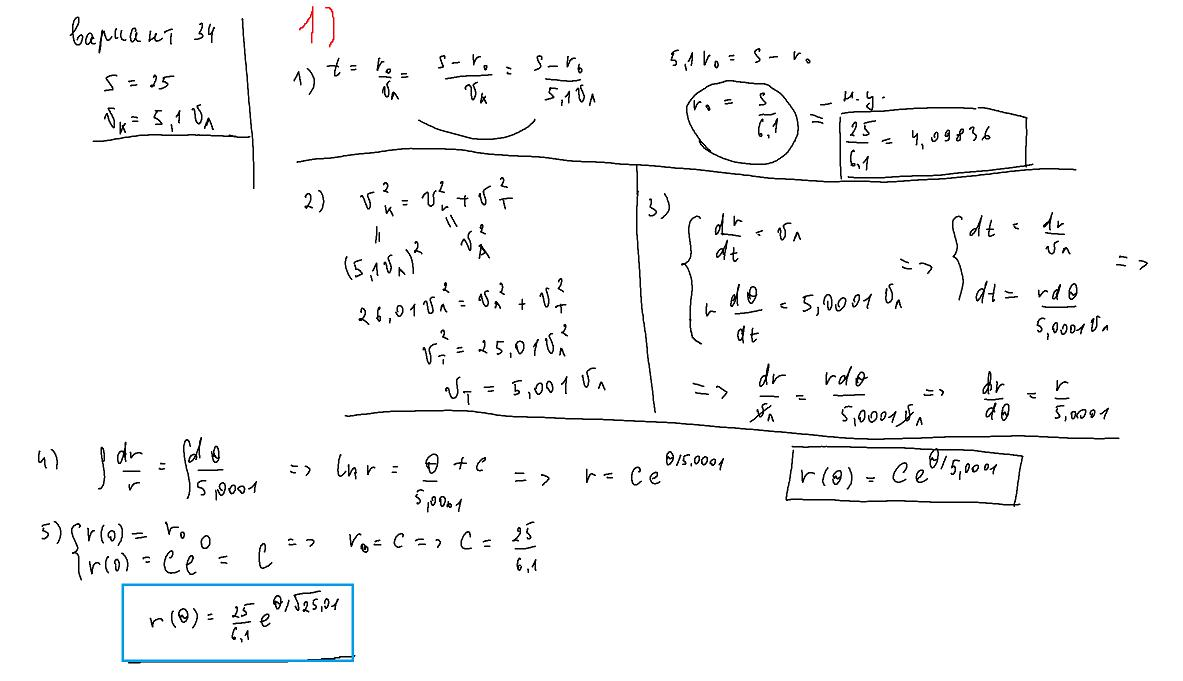 вариант 34
S = 25
v_к = 5,1 v_л
1)
1) t = r₀/v_л = (S − r₀)/v_к = (S − r₀)/(5,1 v_л)
5,1 r₀ = S − r₀
r₀ = S/6,1 − н.у.
= 25/6,1 = 4,09836
2) v_к² = v_r² + v_т²
(5,1 v_л)² v_л²
26,01 v_л² = v_л² + v_т²
v_т² = 25,01 v_л²
v_т = 5,001 v_л
3) { dr/dt = v_л
r dθ/dt = 5,0001 v_л
=> { dt = dr/v_л
dt = rdθ/(5,0001 v_л) =>
=> dr/v_л = rdθ/(5,0001 v_л) => dr/dθ = r/5,0001
4) ∫ dr/r = ∫ dθ/5,0001 => ln r = θ/5,0001 + c => r = Ce^(θ/5,0001) r(θ) = Ce^(θ/5,0001)
5) { r(0) = r₀
r(0) = Ce⁰ = C => r₀ = C => C = 25/6,1
r(θ) = 25/6,1 e^(θ/√25,01)